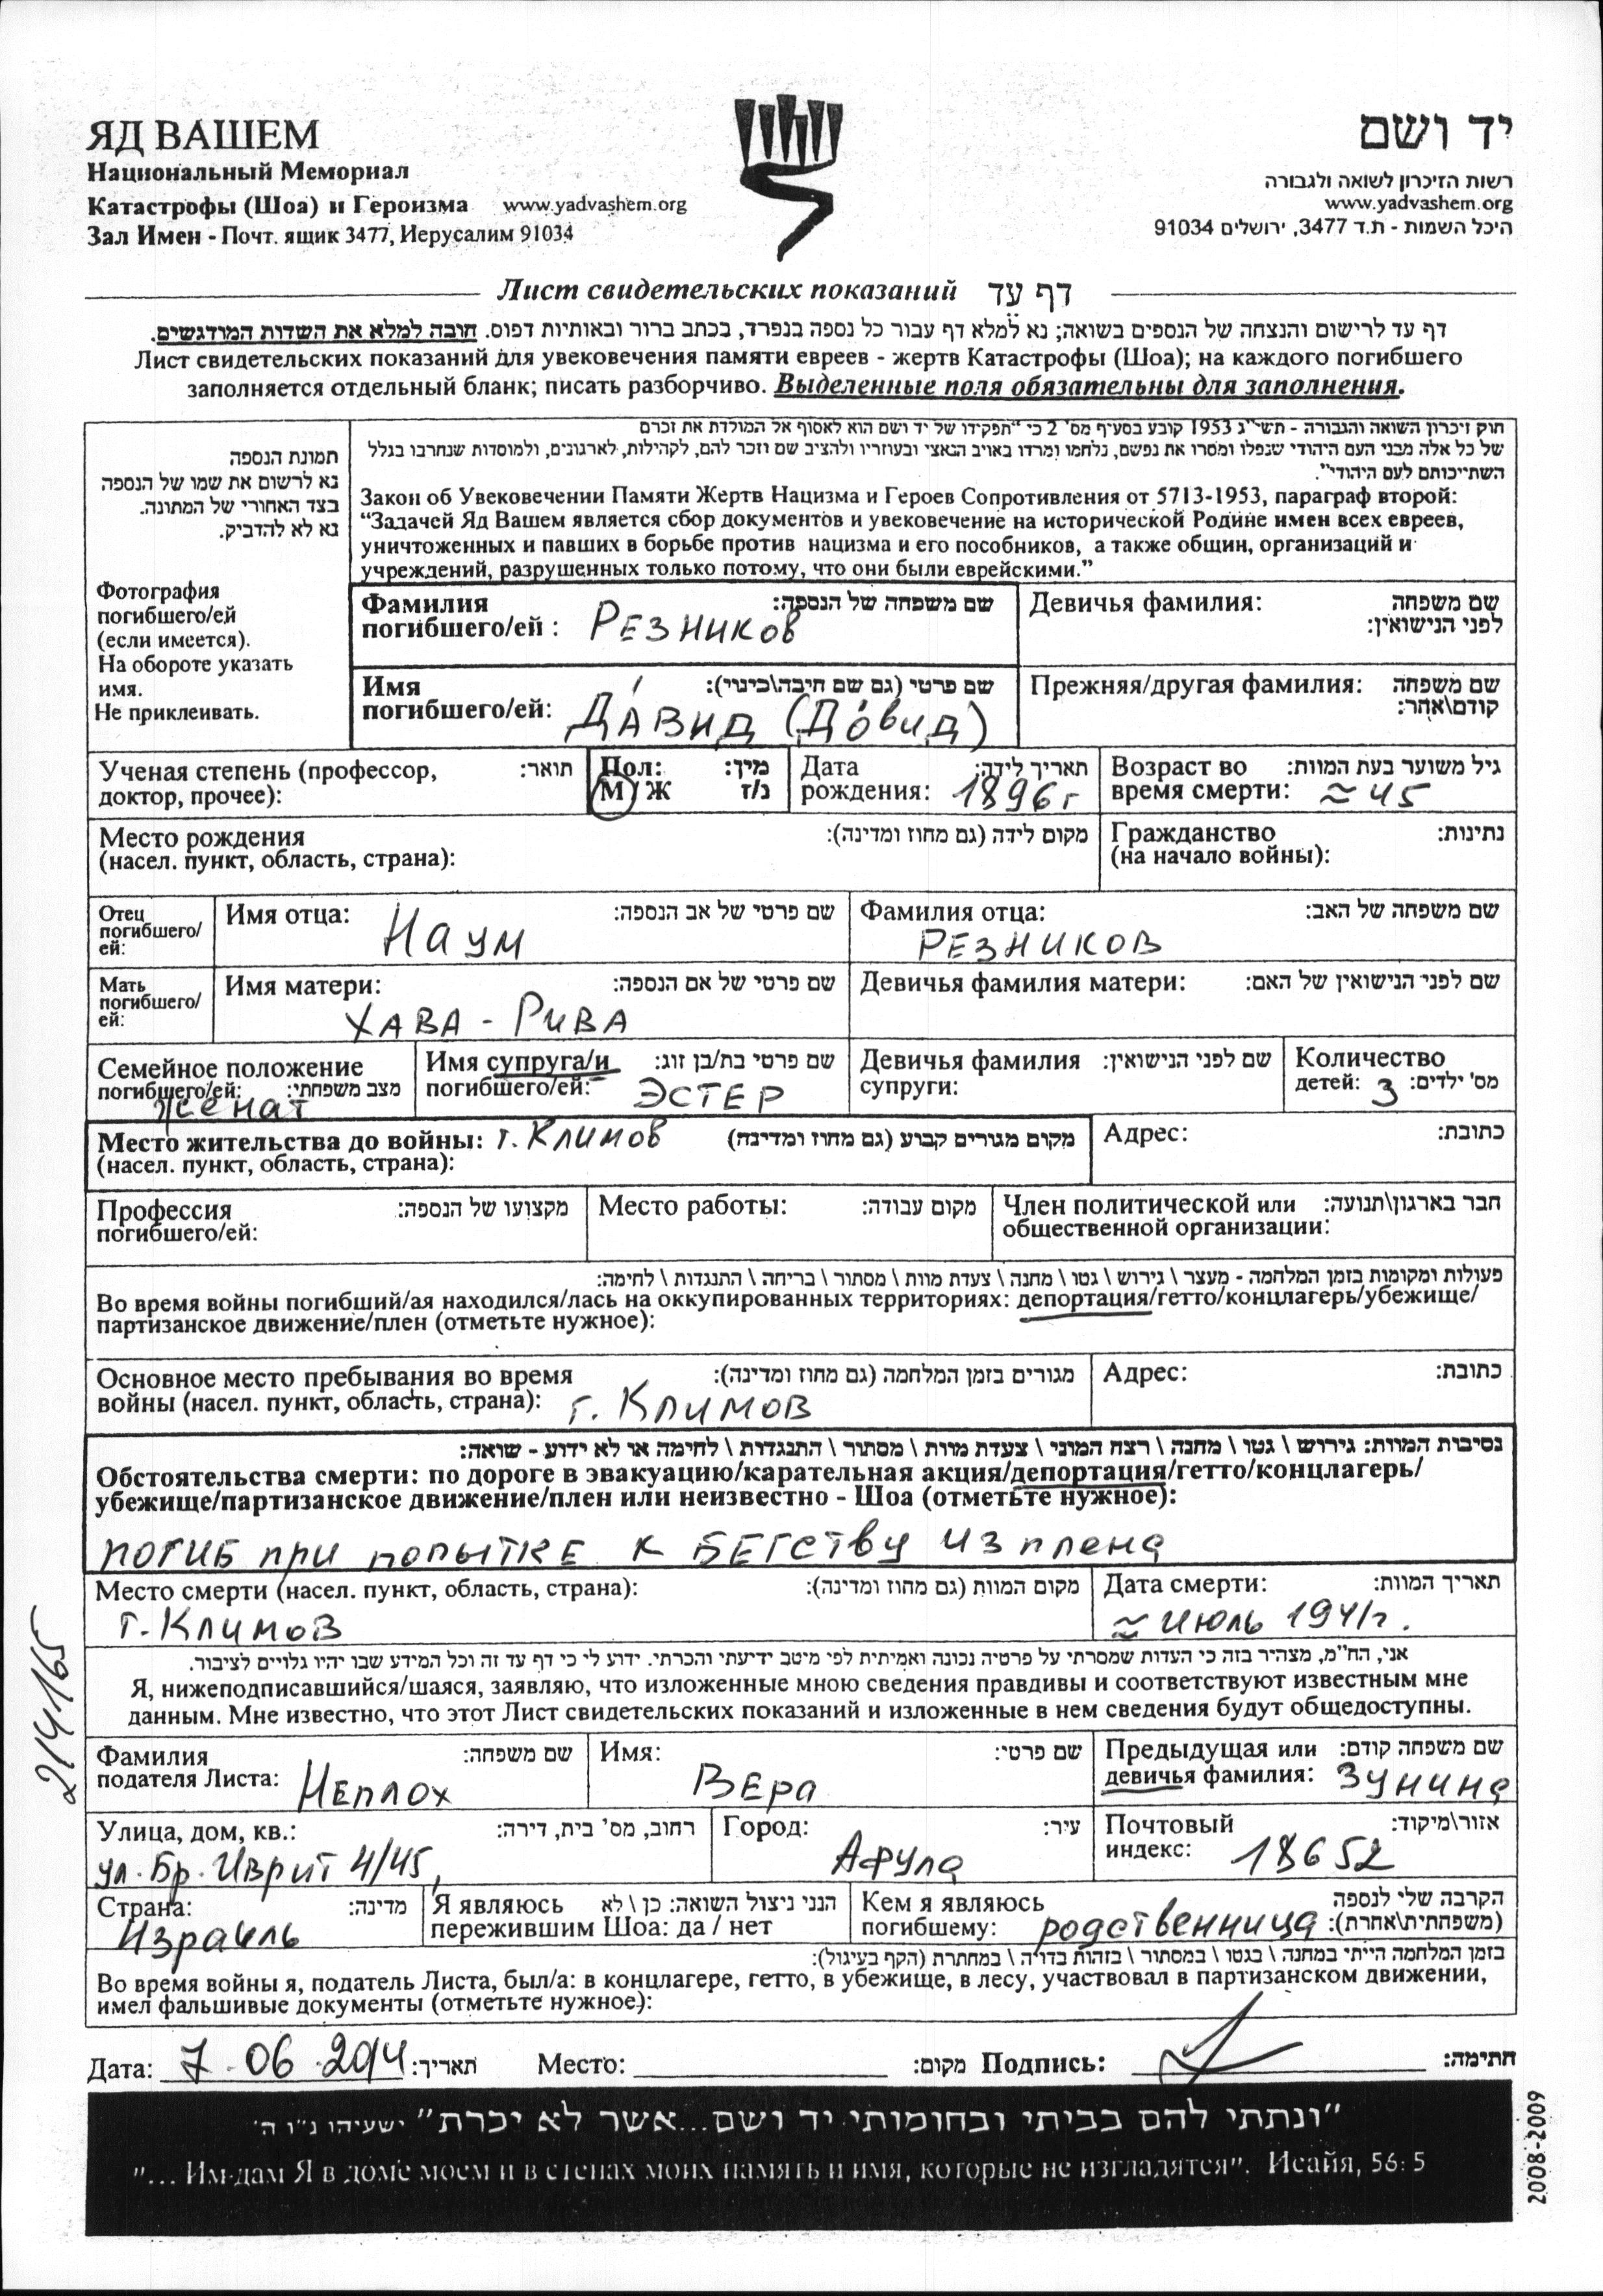 ЯД ВАШЕМ
Национальный Мемориал
Катастрофы (Шоа) и Героизма www.yadvashem.org
Зал Имен - Почт. ящик 3477, Иерусалим 91034
יד ושם
רשות הזיכרון לשואה ולגבורה
www.yadvashem.org
היכל השמות - ת.ד 3477, ירושלים 91034
Лист свидетельских показаний דף עד
דף עד לרישום והנצחה של הנספים בשואה; נא למלא דף עבור כל נספה בנפרד, בכתב ברור ובאותיות דפוס. חובה למלא את השדות המודגשים.
Лист свидетельских показаний для увековечения памяти евреев - жертв Катастрофы (Шоа); на каждого погибшего
заполняется отдельный бланк; писать разборчиво. Выделенные поля обязательны для заполнения.
תמונת הנספה
נא לרשום את שמו של הנספה
בצד האחורי של התמונה.
נא לא להדביק.
Фотография
погибшего/ей
(если имеется).
На обороте указать
имя.
Не приклеивать.
חוק זיכרון השואה והגבורה - תשי"ג 1953 קובע בסעיף מס' 2 כי "תפקידו של יד ושם הוא לאסוף אל המולדת את זכרם
של כל אלה מבני העם היהודי שנפלו ומסרו את נפשם, נלחמו ומרדו באויב הנאצי ובעוזריו ולהציב שם וזכר להם, לקהילות, לארגונים, ולמוסדות שנחרבו בגלל
השתייכותם לעם היהודי".
Закон об Увековечении Памяти Жертв Нацизма и Героев Сопротивления от 5713-1953, параграф второй:
“Задачей Яд Вашем является сбор документов и увековечение на исторической Родине имен всех евреев,
уничтоженных и павших в борьбе против нацизма и его пособников, а также общин, организаций и
учреждений, разрушенных только потому, что они были еврейскими.”
Фамилия שם משפחה של הנספה:
погибшего/ей : Резников
Девичья фамилия: שם משפחה
לפני הנישואין:
Имя שם פרטי (גם שם חיבה\כינוי):
погибшего/ей: Давид (Довид)
Прежняя/другая фамилия: שם משפחה
קודם\אחר:
Ученая степень (профессор, תואר:
доктор, прочее):
Пол: מין:
М/Ж נ/ז
Дата תאריך לידה:
рождения: 1896г
Возраст во גיל משוער בעת המוות:
время смерти: ≈ 45
Место рождения מקום לידה (גם מחוז ומדינה):
(насел. пункт, область, страна):
Гражданство נתינות:
(на начало войны):
Отец
погибшего/
ей:
Имя отца: שם פרטי של אב הנספה:
Наум
Фамилия отца: שם משפחה של האב:
Резников
Мать
погибшего/
ей:
Имя матери: שם פרטי של אם הנספה:
Хава - Рива
Девичья фамилия матери: שם לפני הנישואין של האם:
Семейное положение
погибшего/ей: מצב משפחתי:
женат
Имя супруга/и שם פרטי בת/בן זוג:
погибшего/ей: Эстер
Девичья фамилия שם לפני הנישואין:
супруги:
Количество
детей: 3 מס' ילדים:
Место жительства до войны: г. Климов מקום מגורים קבוע (גם מחוז ומדינה)
(насел. пункт, область, страна):
Адрес: כתובת:
Профессия מקצועו של הנספה:
погибшего/ей:
Место работы: מקום עבודה:
Член политической или חבר בארגון\תנועה:
общественной организации:
פעולות ומקומות בזמן המלחמה - מעצר \ גירוש \ גטו \ מחנה \ צעדת מוות \ מסתור \ בריחה \ התנגדות \ לחימה:
Во время войны погибший/ая находился/лась на оккупированных территориях: депортация/гетто/концлагерь/убежище/
партизанское движение/плен (отметьте нужное):
Основное место пребывания во время מגורים בזמן המלחמה (גם מחוז ומדינה):
войны (насел. пункт, область, страна): г. Климов
Адрес: כתובת:
נסיבות המוות: גירוש \ גטו \ מחנה \ רצח המוני \ צעדת מוות \ מסתור \ התנגדות \ לחימה או לא ידוע - שואה:
Обстоятельства смерти: по дороге в эвакуацию/карательная акция/депортация/гетто/концлагерь/
убежище/партизанское движение/плен или неизвестно - Шоа (отметьте нужное):
погиб при попытке к бегству из плена
Место смерти (насел. пункт, область, страна): מקום המוות (גם מחוז ומדינה):
г. Климов
Дата смерти: תאריך המוות:
≈ июль 1941г.
אני, הח"מ, מצהיר בזה כי העדות שמסרתי על פרטיה נכונה ואמיתית לפי מיטב ידיעתי והכרתי. ידוע לי כי דף עד זה וכל המידע שבו יהיו גלויים לציבור.
Я, нижеподписавшийся/шаяся, заявляю, что изложенные мною сведения правдивы и соответствуют известным мне
данным. Мне известно, что этот Лист свидетельских показаний и изложенные в нем сведения будут общедоступны.
Фамилия שם משפחה:
подателя Листа: Неплох
Имя: שם פרטי:
Вера
Предыдущая или שם משפחה קודם:
девичья фамилия: Зунина
Улица, дом, кв.: רחוב, מס' בית, דירה:
ул. Бр. Иврит 4/45,
Город: עיר:
Афула
Почтовый אזור\מיקוד:
индекс: 18652
Страна: מדינה:
Израиль
Я являюсь הנני ניצול השואה: כן \ לא
пережившим Шоа: да / нет
Кем я являюсь הקרבה שלי לנספה
погибшему: родственница (משפחתית\אחרת):
בזמן המלחמה הייתי במחנה \ בגטו \ במסתור \ בזהות בדויה \ במחתרת (הקף בעיגול):
Во время войны я, податель Листа, был/а: в концлагере, гетто, в убежище, в лесу, участвовал в партизанском движении,
имел фальшивые документы (отметьте нужное):
Дата: 7.06.2014 תאריך: Место: מקום: Подпись: חתימה:
"ונתתי להם בביתי ובחומותי יד ושם...אשר לא יכרת" ישעיהו נ"ו ה'
"... Им дам Я в доме моем и в стенах моих память и имя, которые не изгладятся". Исайя, 56: 5
214165
2008-2009